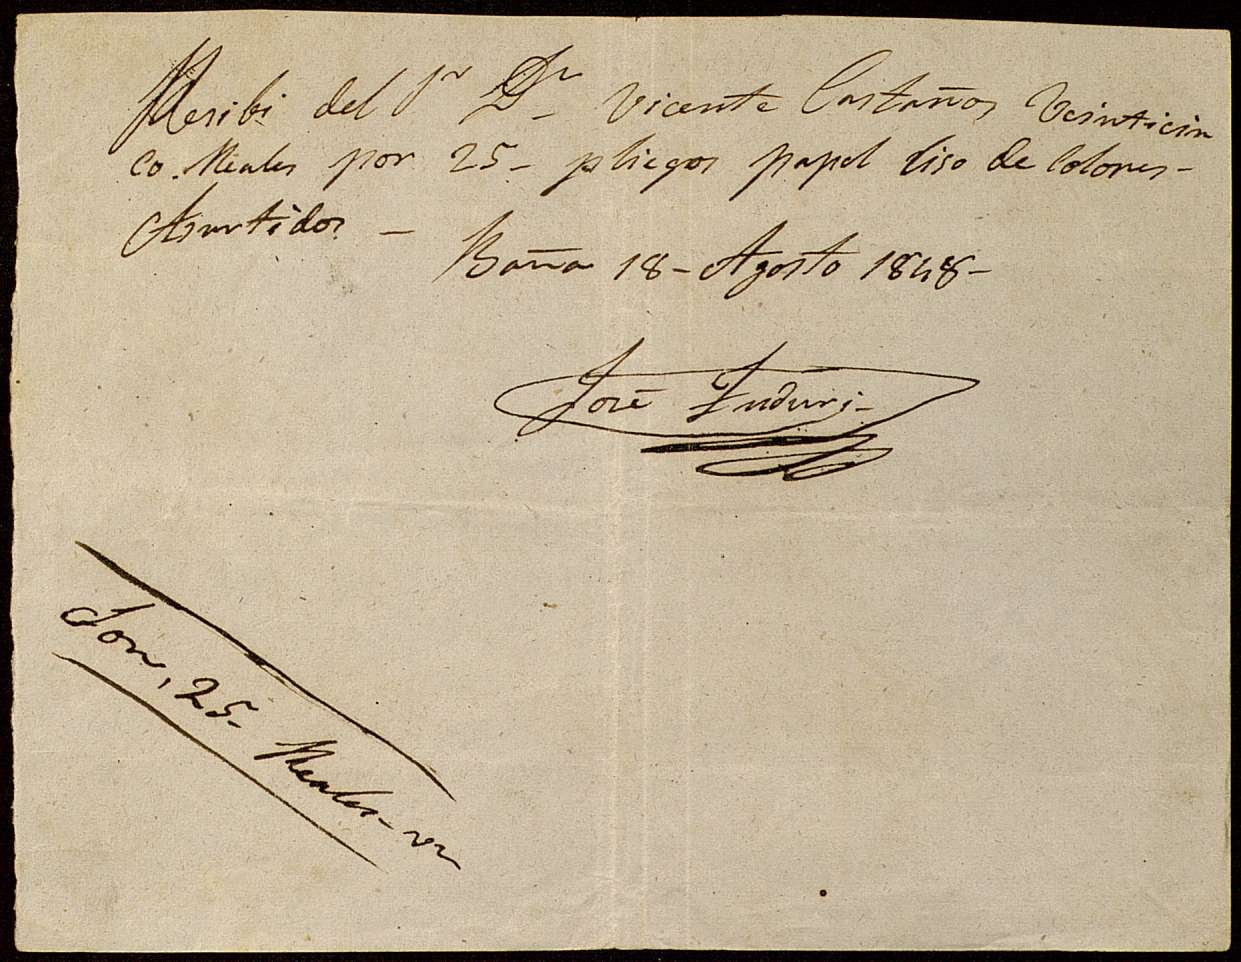 Resibi del Sr Dn Vicente Castaños Veinticin
co. Reales por 25- pliegos papel liso de Colores-
Asurtidos -
Baña 18- Agosto 1848-
José Luduri-
Son, 25- Reales- vn